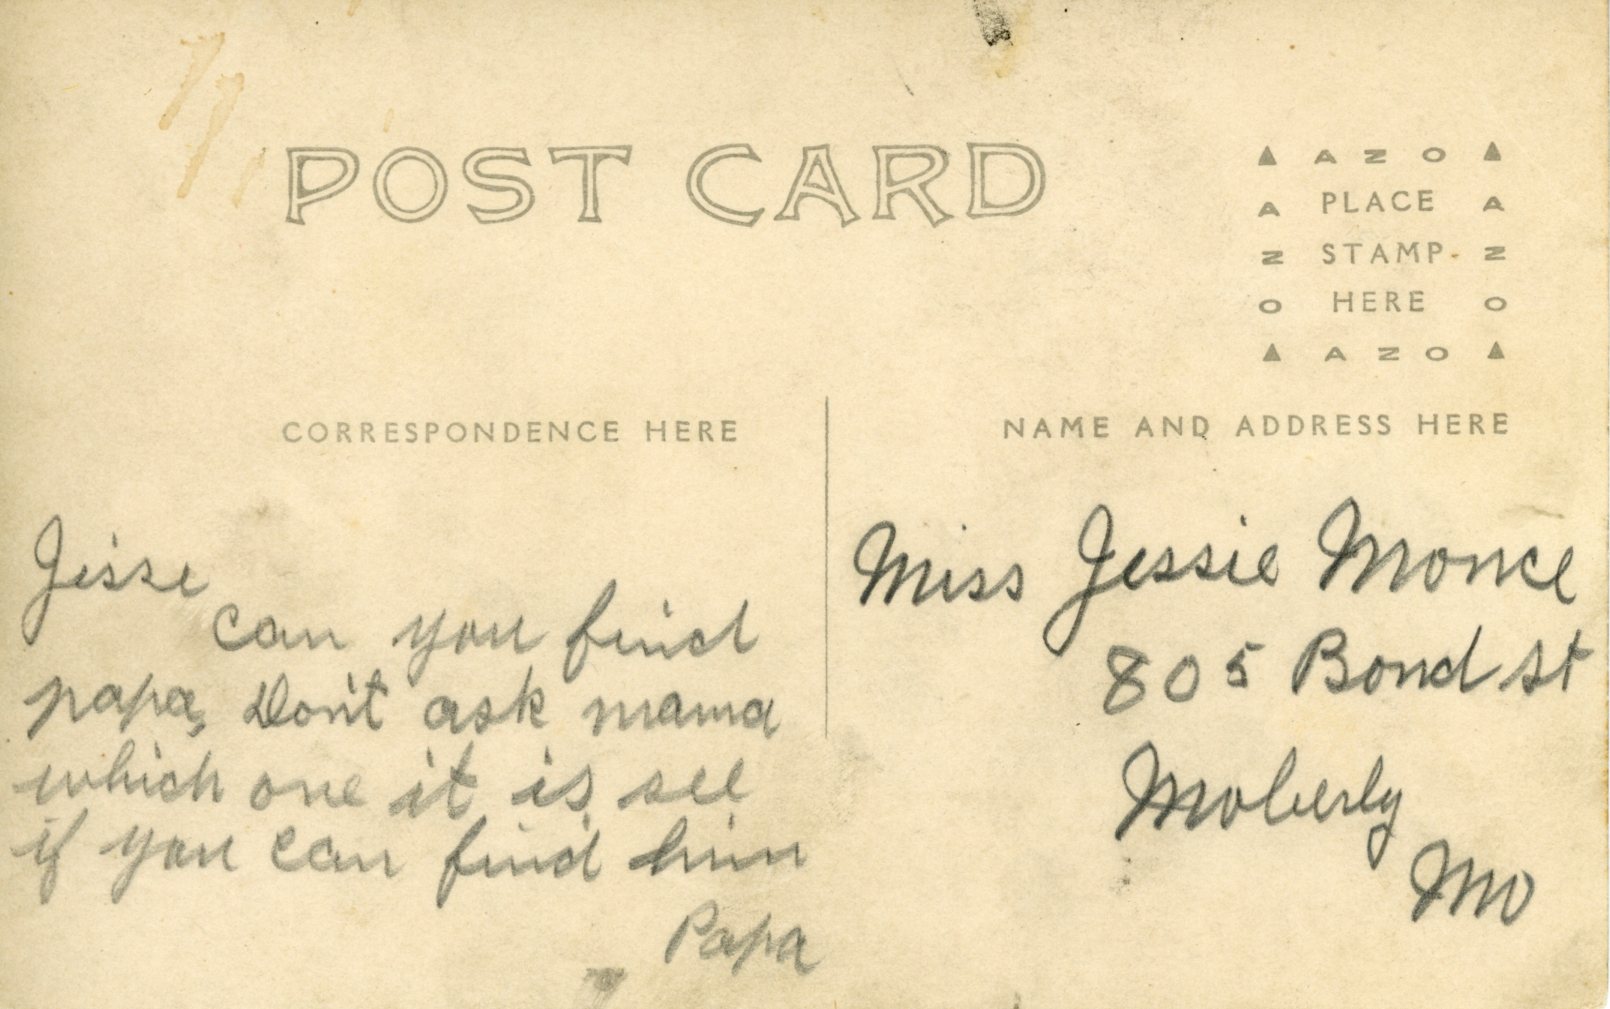 POST CARD
▲ AZO ▲
A PLACE A
Z STAMP Z
O HERE O
▲ AZO ▲
CORRESPONDENCE HERE
NAME AND ADDRESS HERE
Jesse
can you find
papa, Don't ask mama
which one it is see
if you can find him
Papa
Miss Jessie Monce
805 Bond st
Moberly
Mo